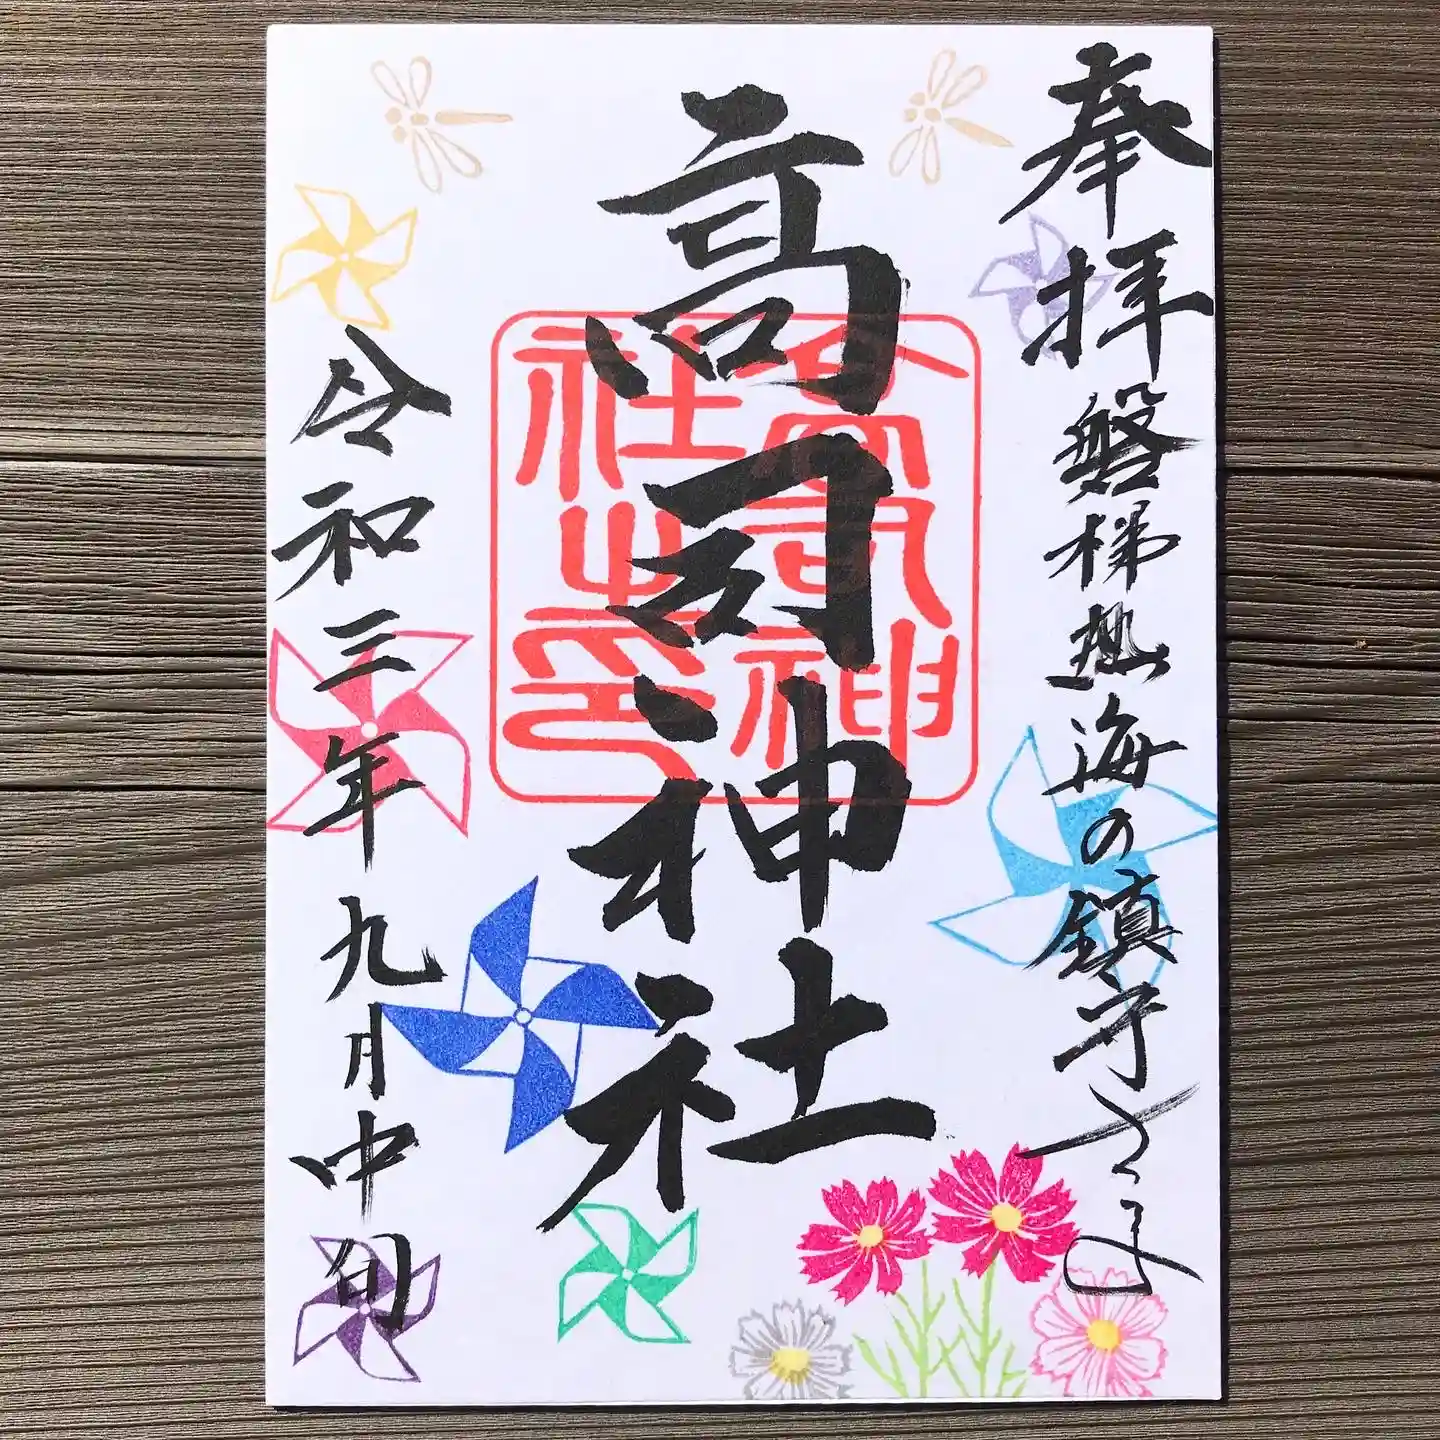 奉拝
磐梯熱海の鎮守さま
高司神社
高司神社之印
令和三年九月中旬